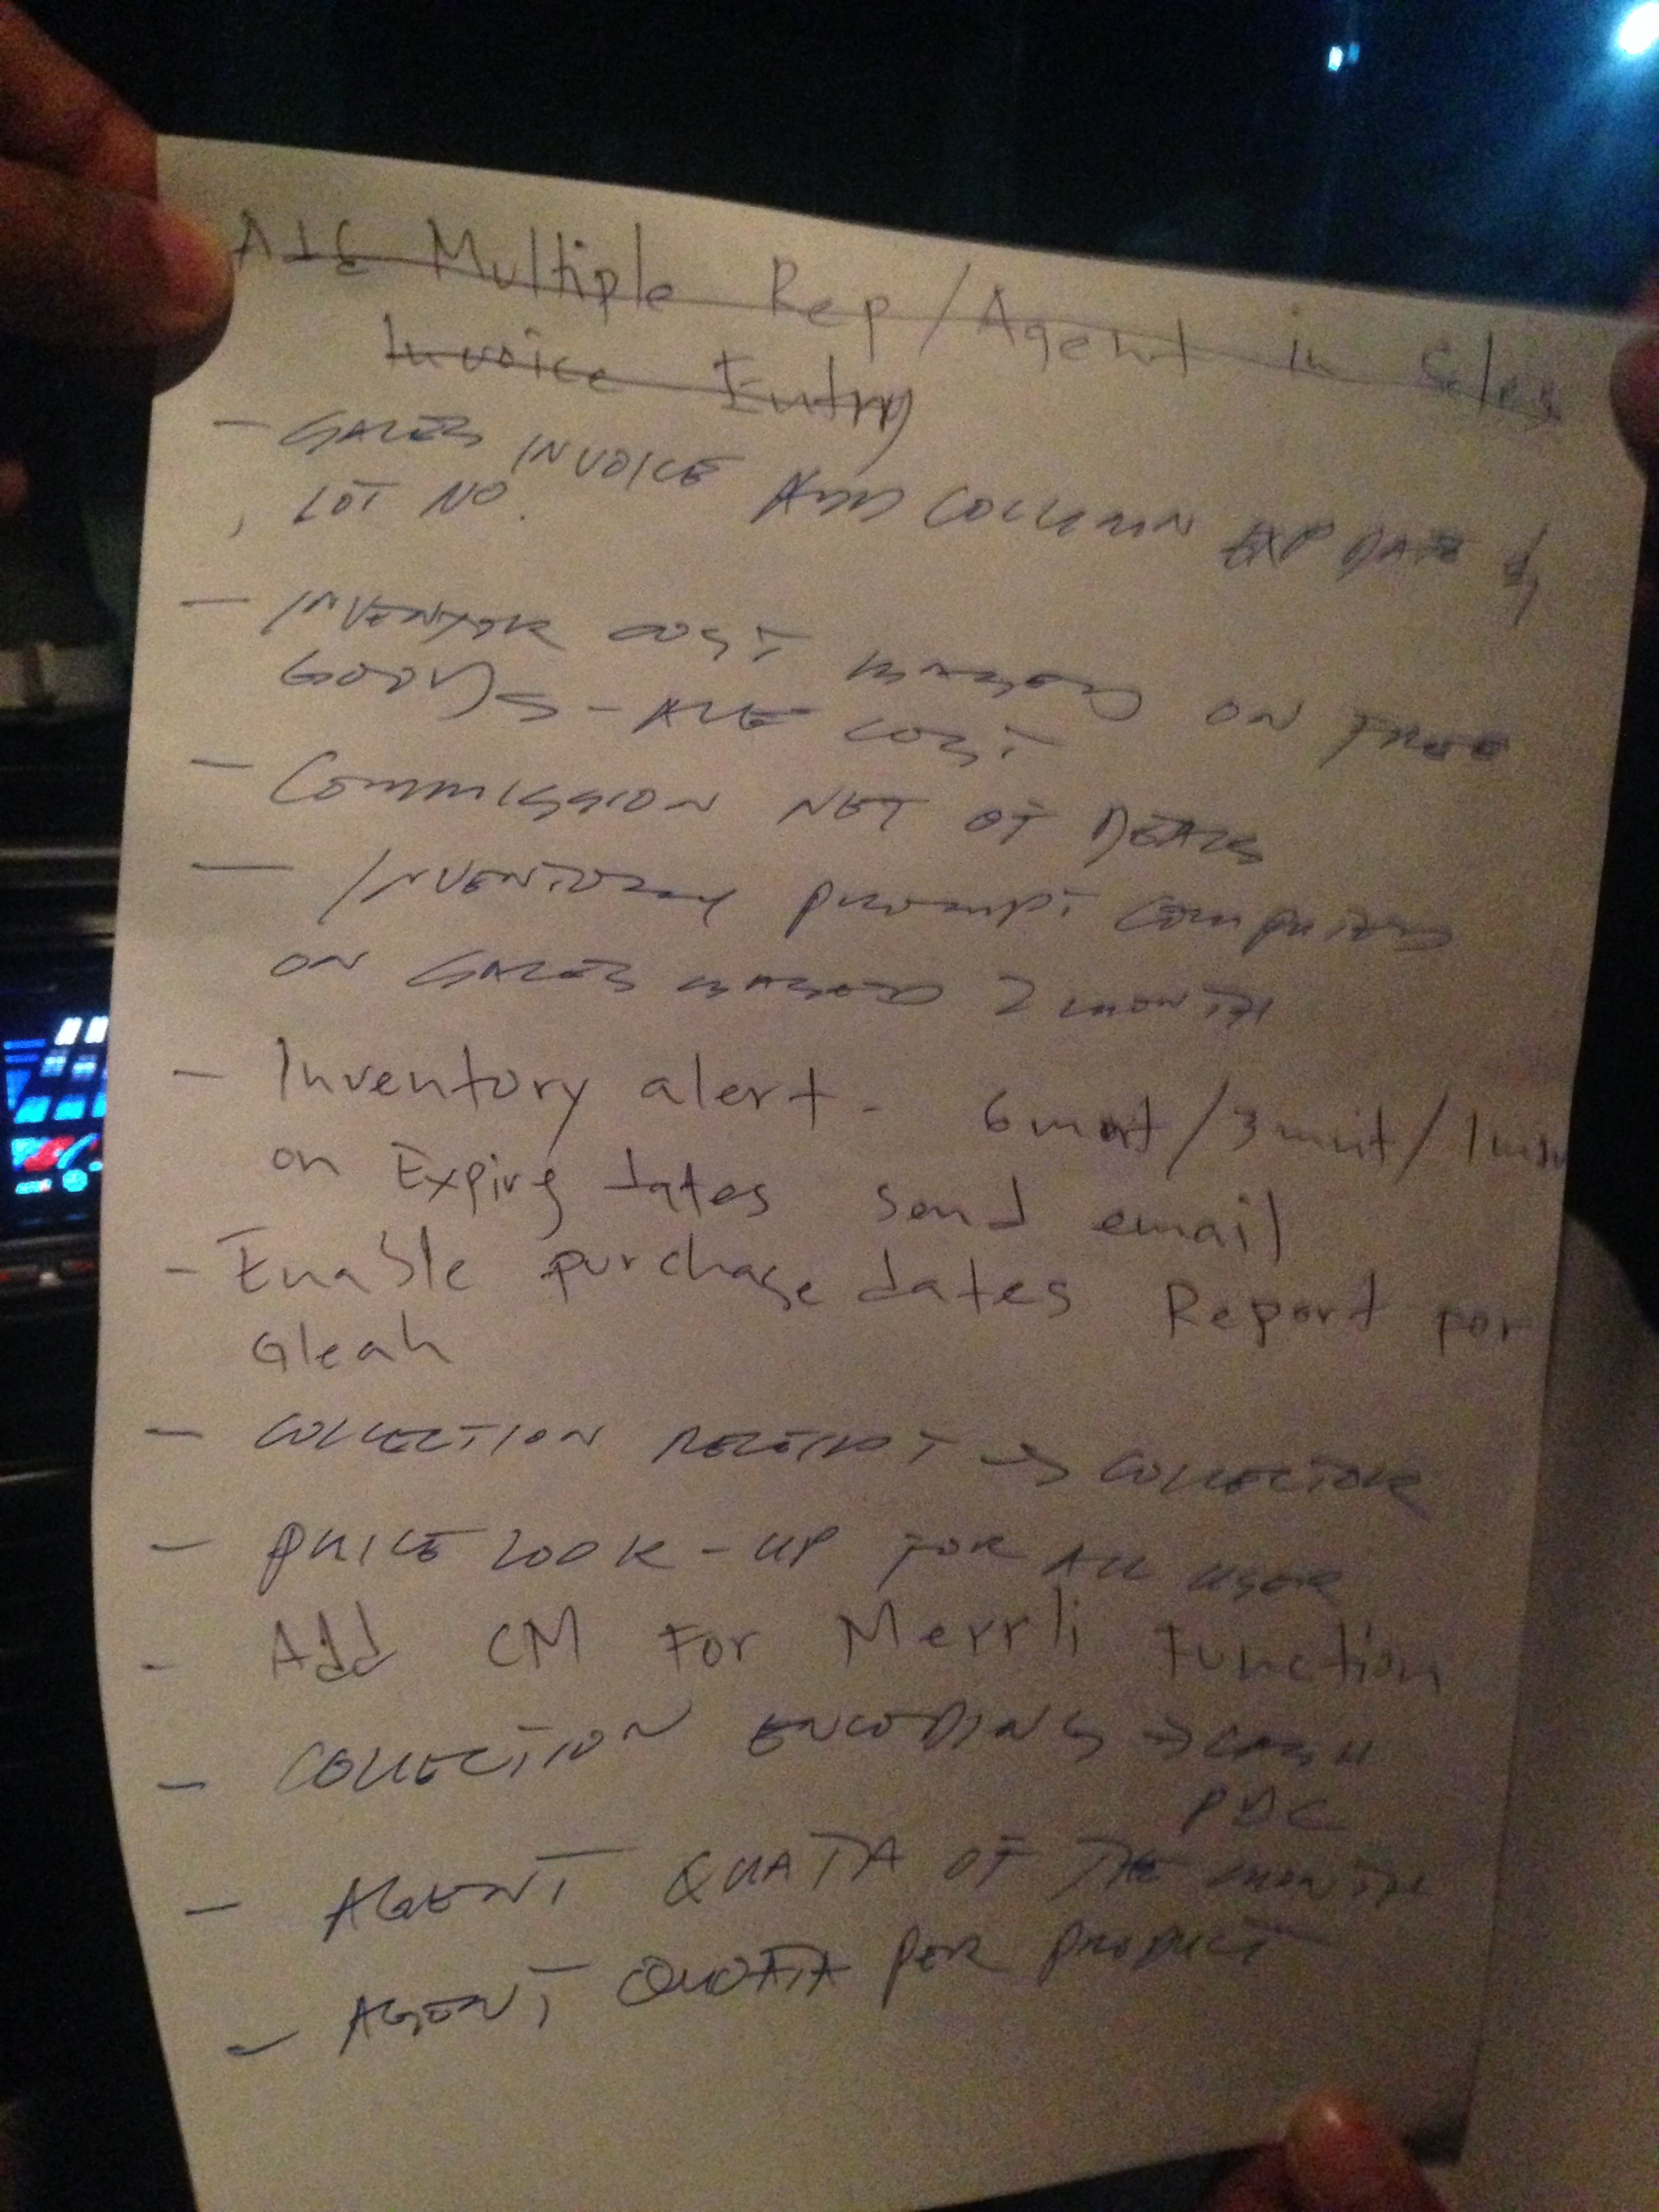 Multiple Rep/Agent in Sales
Invoice Entry
- SALES INVOICE ADD COLUMN EXP DATE &
, LOT NO.
- INVENTOR COST BASED ON FREE
GOODS - AVE COST
- COMMISSION NET OF DEALS
- INVENTORY PROMPT COMPUTED
ON SALES BASED 2 MONTH
- Inventory alert - 6mnt/3mnt/1mn
on Expirg dates send email
- Enable purchase dates Report for
Gleah
- COLLECTION RECEIPT → COLLECTOR
- PRICE LOOK-UP FOR ALL USER
- Add CM For Merrli Function
- COLLECTION ENCODING → CASH
PDC
- AGENT QUATA OF THE MONTH
- AGENT QUOATA PER PRODUCT